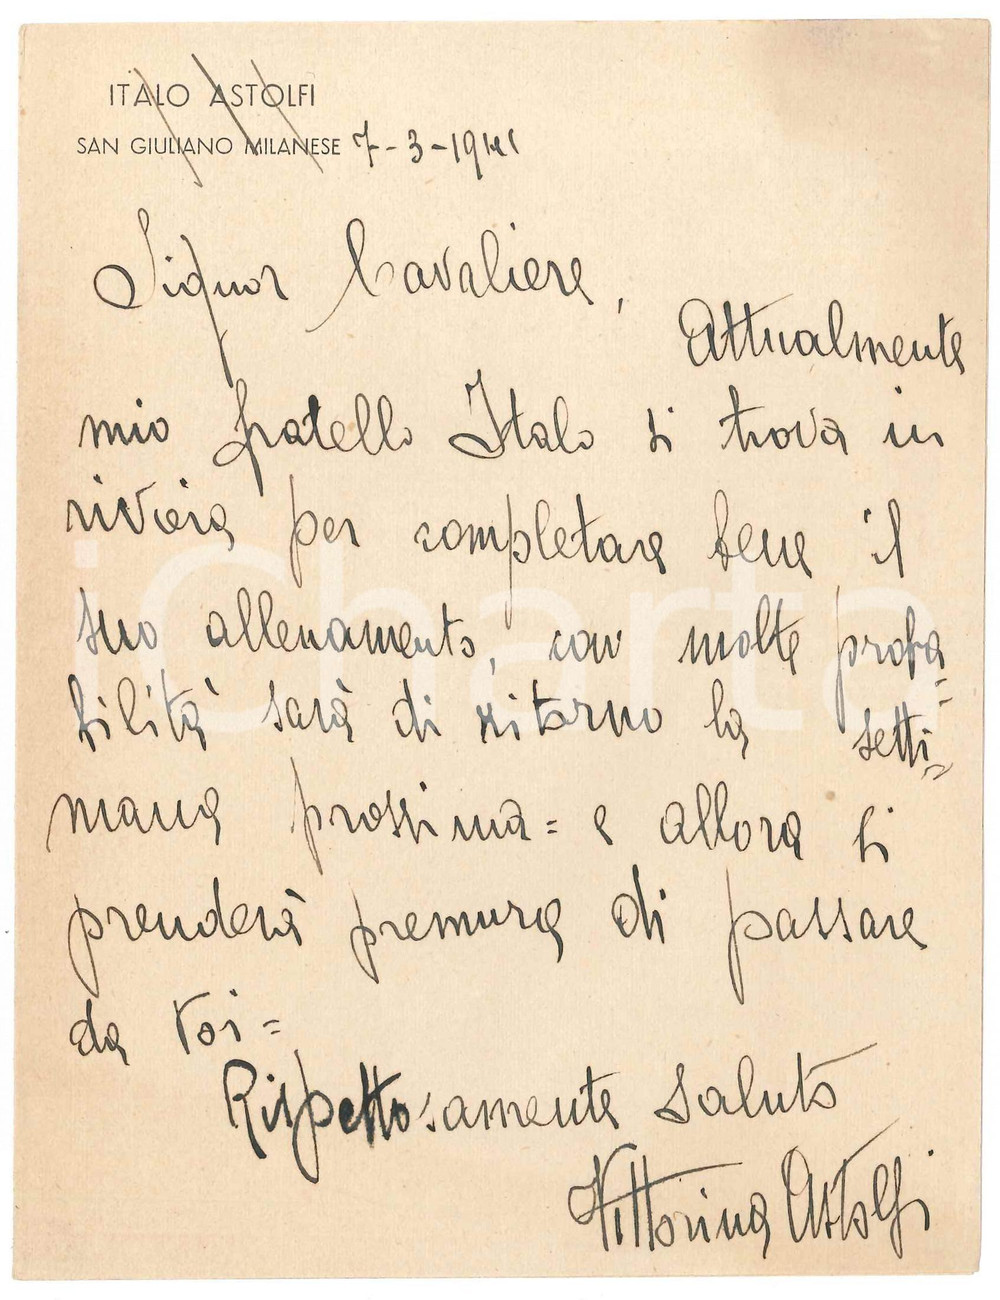 ITALO ASTOLFI
SAN GIULIANO MILANESE 7-3-1941
Signor Cavaliere,
Attualmente
mio fratello Italo si trova in
riviera per completare bene il
suo allenamento, con molte proba=
bilità sarà di ritorno la setti=
mana prossima = e allora si
prenderà premura di passare
da voi =
Rispettosamente saluto
Vittorina Astolfi
iCharta